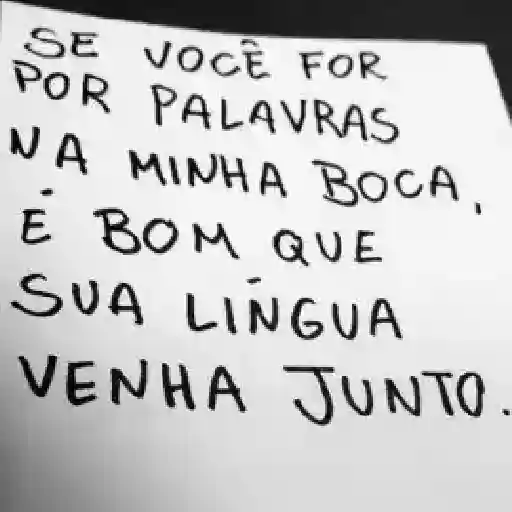 SE VOCÊ FOR
POR PALAVRAS
NA MINHA BOCA,
É BOM QUE
SUA LÍNGUA
VENHA JUNTO.